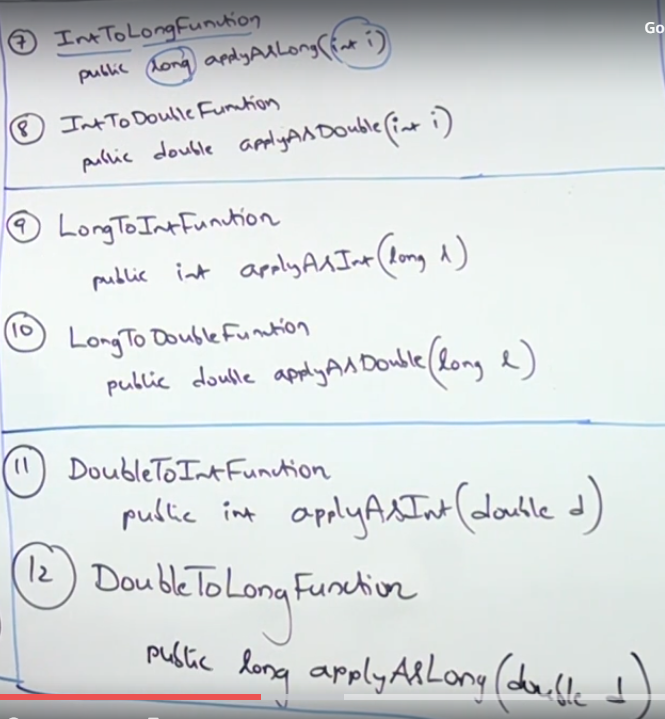 Go
7 IntToLongFunction
public long applyAsLong(int i)
8 IntToDoubleFunction
public double applyAsDouble(int i)
9 LongToIntFunction
public int applyAsInt(long l)
10 LongToDoubleFunction
public double applyAsDouble(long l)
11 DoubleToIntFunction
public int applyAsInt(double d)
12 DoubleToLongFunction
public long applyAsLong(double d)